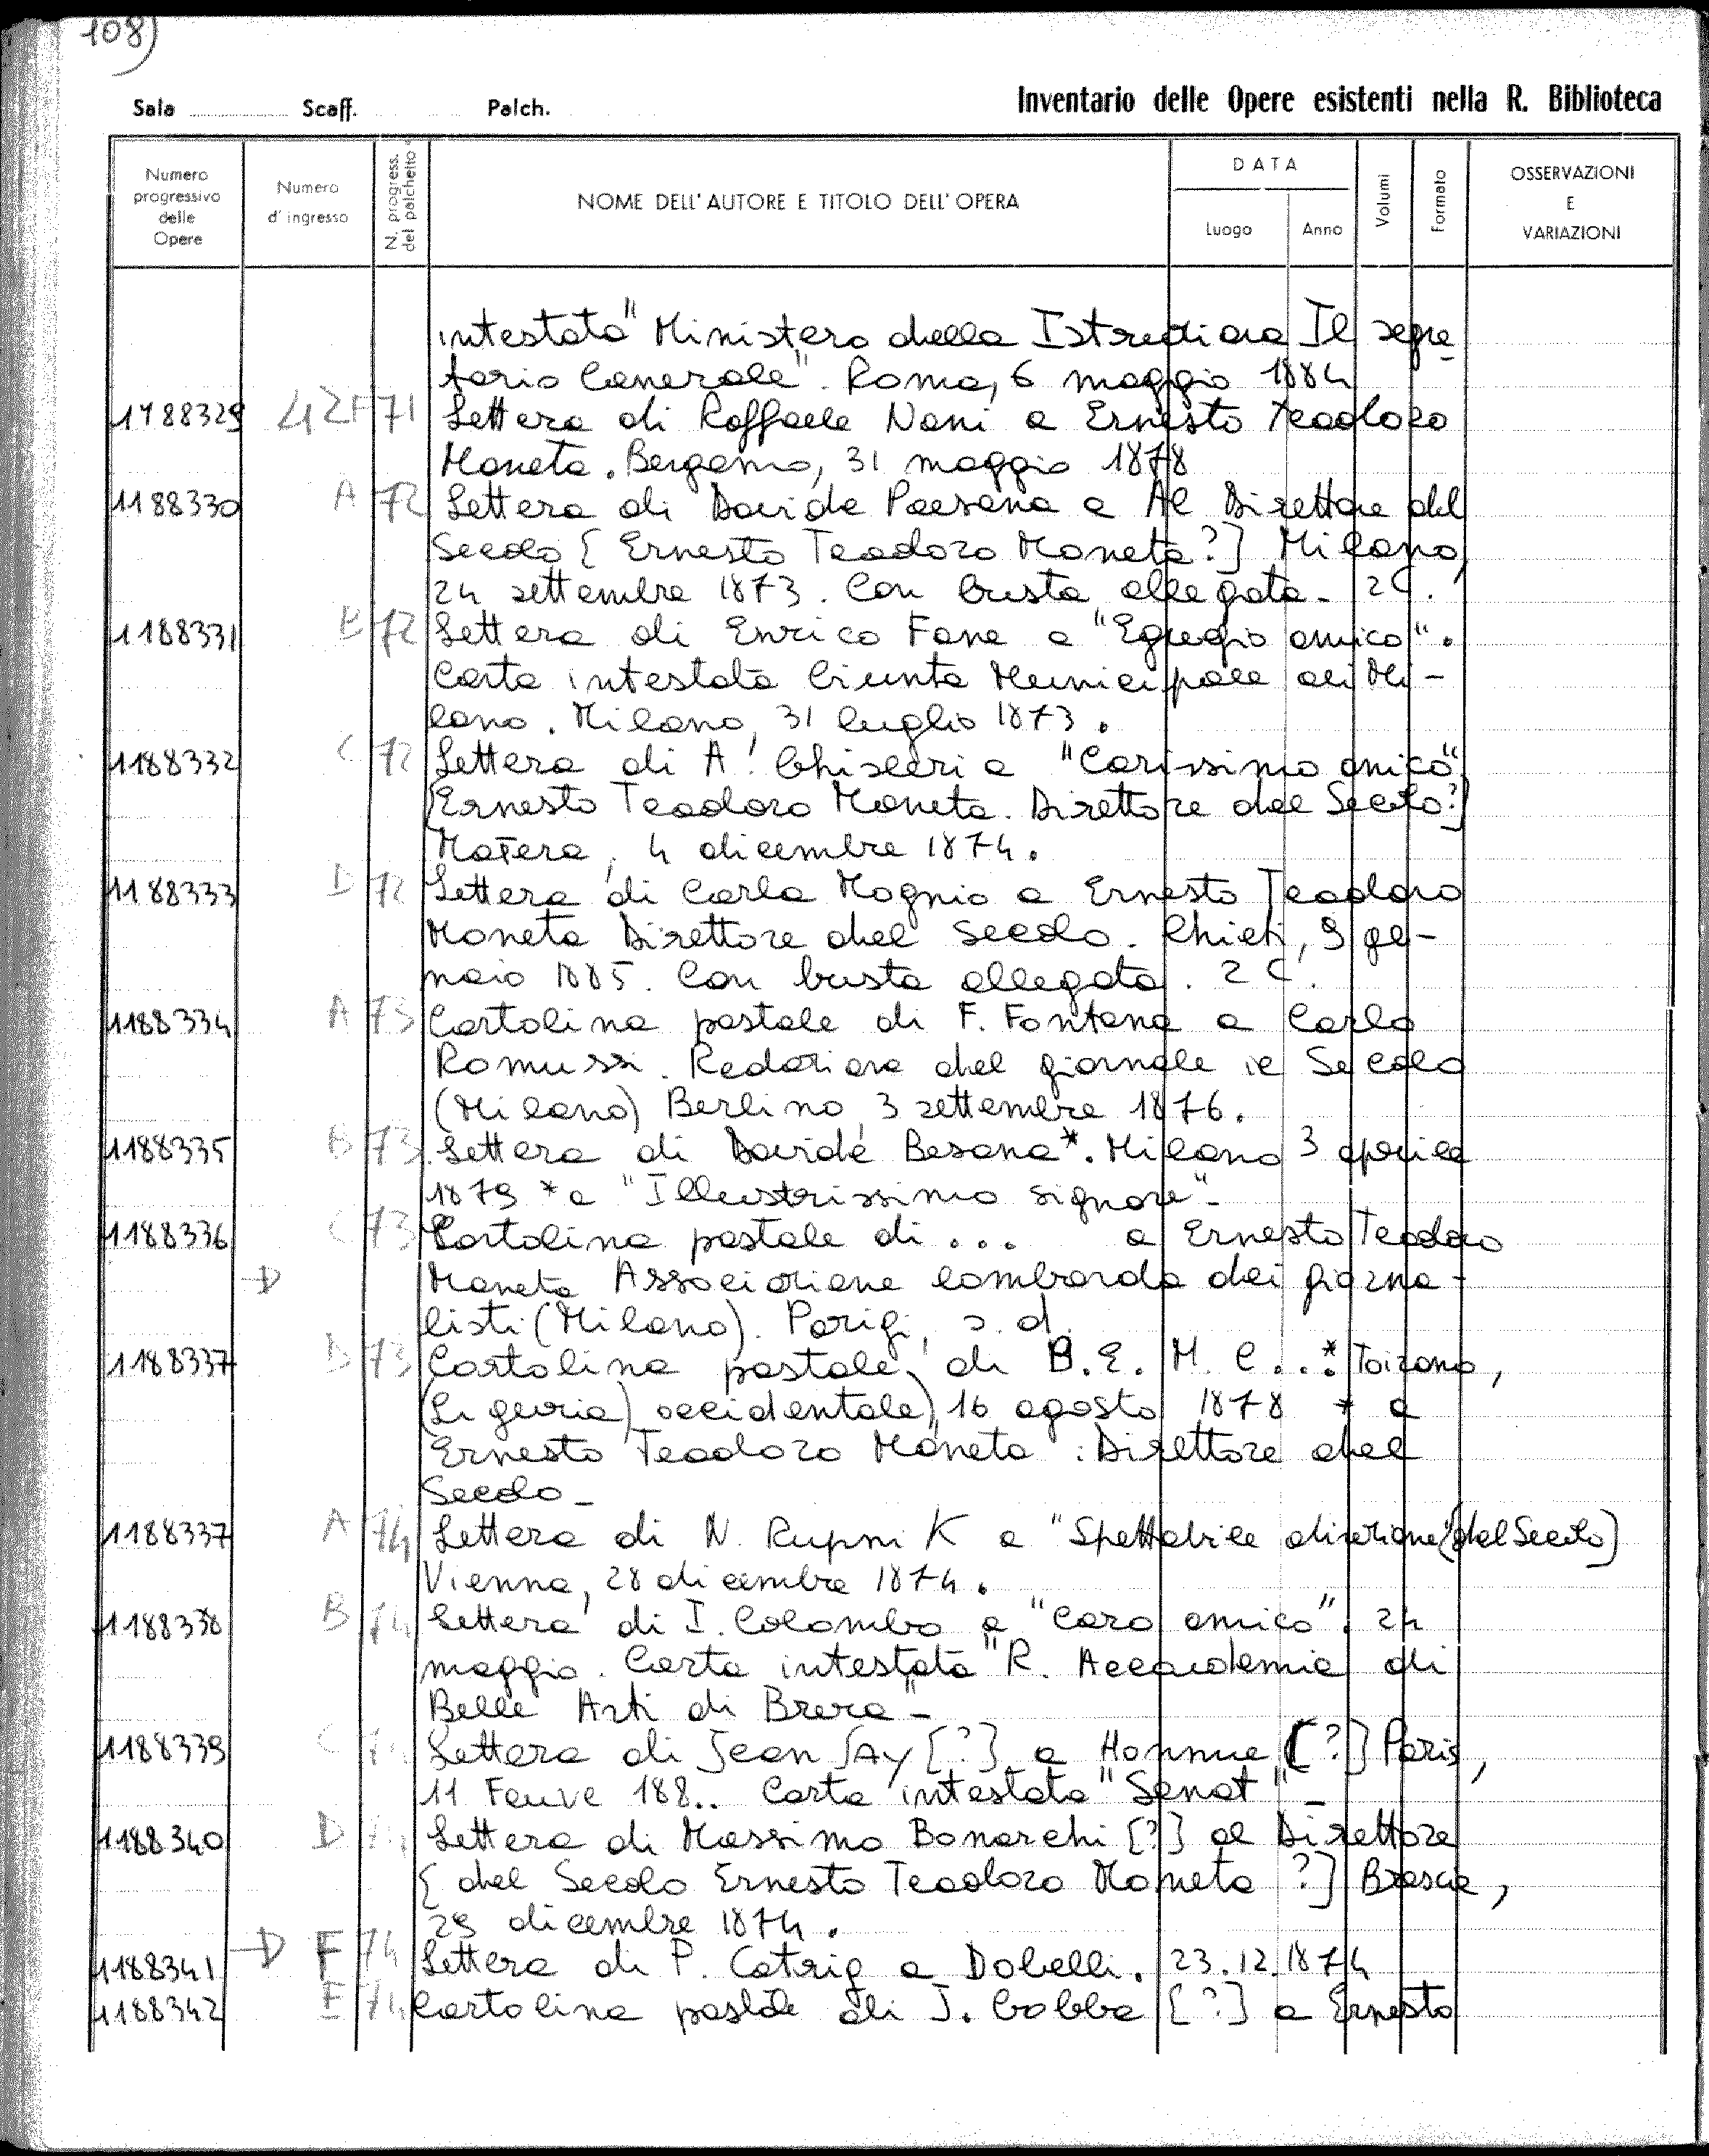 108)
Sala Scaff. Palch. Inventario delle Opere esistenti nella R. Biblioteca
Numero progressivo delle Opere
Numero d'ingresso
N. progress. del palchetto
NOME DELL'AUTORE E TITOLO DELL'OPERA
DATA
Luogo Anno
Volumi
Formato
OSSERVAZIONI E VARIAZIONI
intestata "Ministero della Istruzione Il segre-
tario Generale". Roma, 6 maggio 1884
1188329 42F 71 Lettera di Raffaele Nani a Ernesto Teodoro
Moneta. Bergamo, 31 maggio 1878
1188330 A 72 Lettera di Davide Paesana a Al Direttore del
Secolo [Ernesto Teodoro Moneta?] Milano,
24 settembre 1873. Con busta allegata. 2 C.
1188331 B 72 Lettera di Enrico Fano a "Egregio amico".
Carta intestata Giunta Municipale di Mi-
lano. Milano, 31 luglio 1873.
1188332 C 72 Lettera di A. Ghisleri a "Carissimo amico"
[Ernesto Teodoro Moneta. Direttore del Secolo?]
Matera, 4 dicembre 1874.
1188333 D 72 Lettera di Carlo Mognio a Ernesto Teodoro
Moneta Direttore del Secolo. Chieti, 9 gen-
naio 1885. Con busta allegata. 2 C.
1188334 A 73 Cartolina postale di F. Fontana a Carlo
Romussi. Redazione del giornale il Secolo
(Milano) Berlino, 3 settembre 1876.
1188335 B 73 Lettera di Davide Besana*. Milano 3 aprile
1879 * a "Illustrissimo signore"-
1188336 C 73 Cartolina postale di ... a Ernesto Teodoro
D Moneta Associazione lombarda dei giorna-
listi (Milano). Parigi, s. d.
1188337 D 73 Cartolina postale di B. E. M. C...* Toirano,
(Liguria) occidentale), 16 agosto 1878 * a
Ernesto Teodoro Moneta. Direttore del
Secolo-
1188337 A 74 Lettera di N. Rupnik a "Spettabile direzione" [del Secolo]
Vienna, 28 dicembre 1874.
1188338 B 74 Lettera di I. Colombo a "Caro amico". 24
maggio. Carta intestata "R. Accademia di
Belle Arti di Brera"-
1188339 C Lettera di Jean SAy [?] a [?] Paris,
11 188.. Carta intestata "Senat"-
1188340 D Lettera di Massimo Bonarchi [?] al Direttore
[del Secolo Ernesto Teodoro Moneta ?] Brescia,
29 dicembre 1874.
1188341 D F 74 Lettera di P. Catrig a Dobelli. 23.12.1874
1188342 E 74 Cartolina postale di J. Gobba [?] a Ernesto